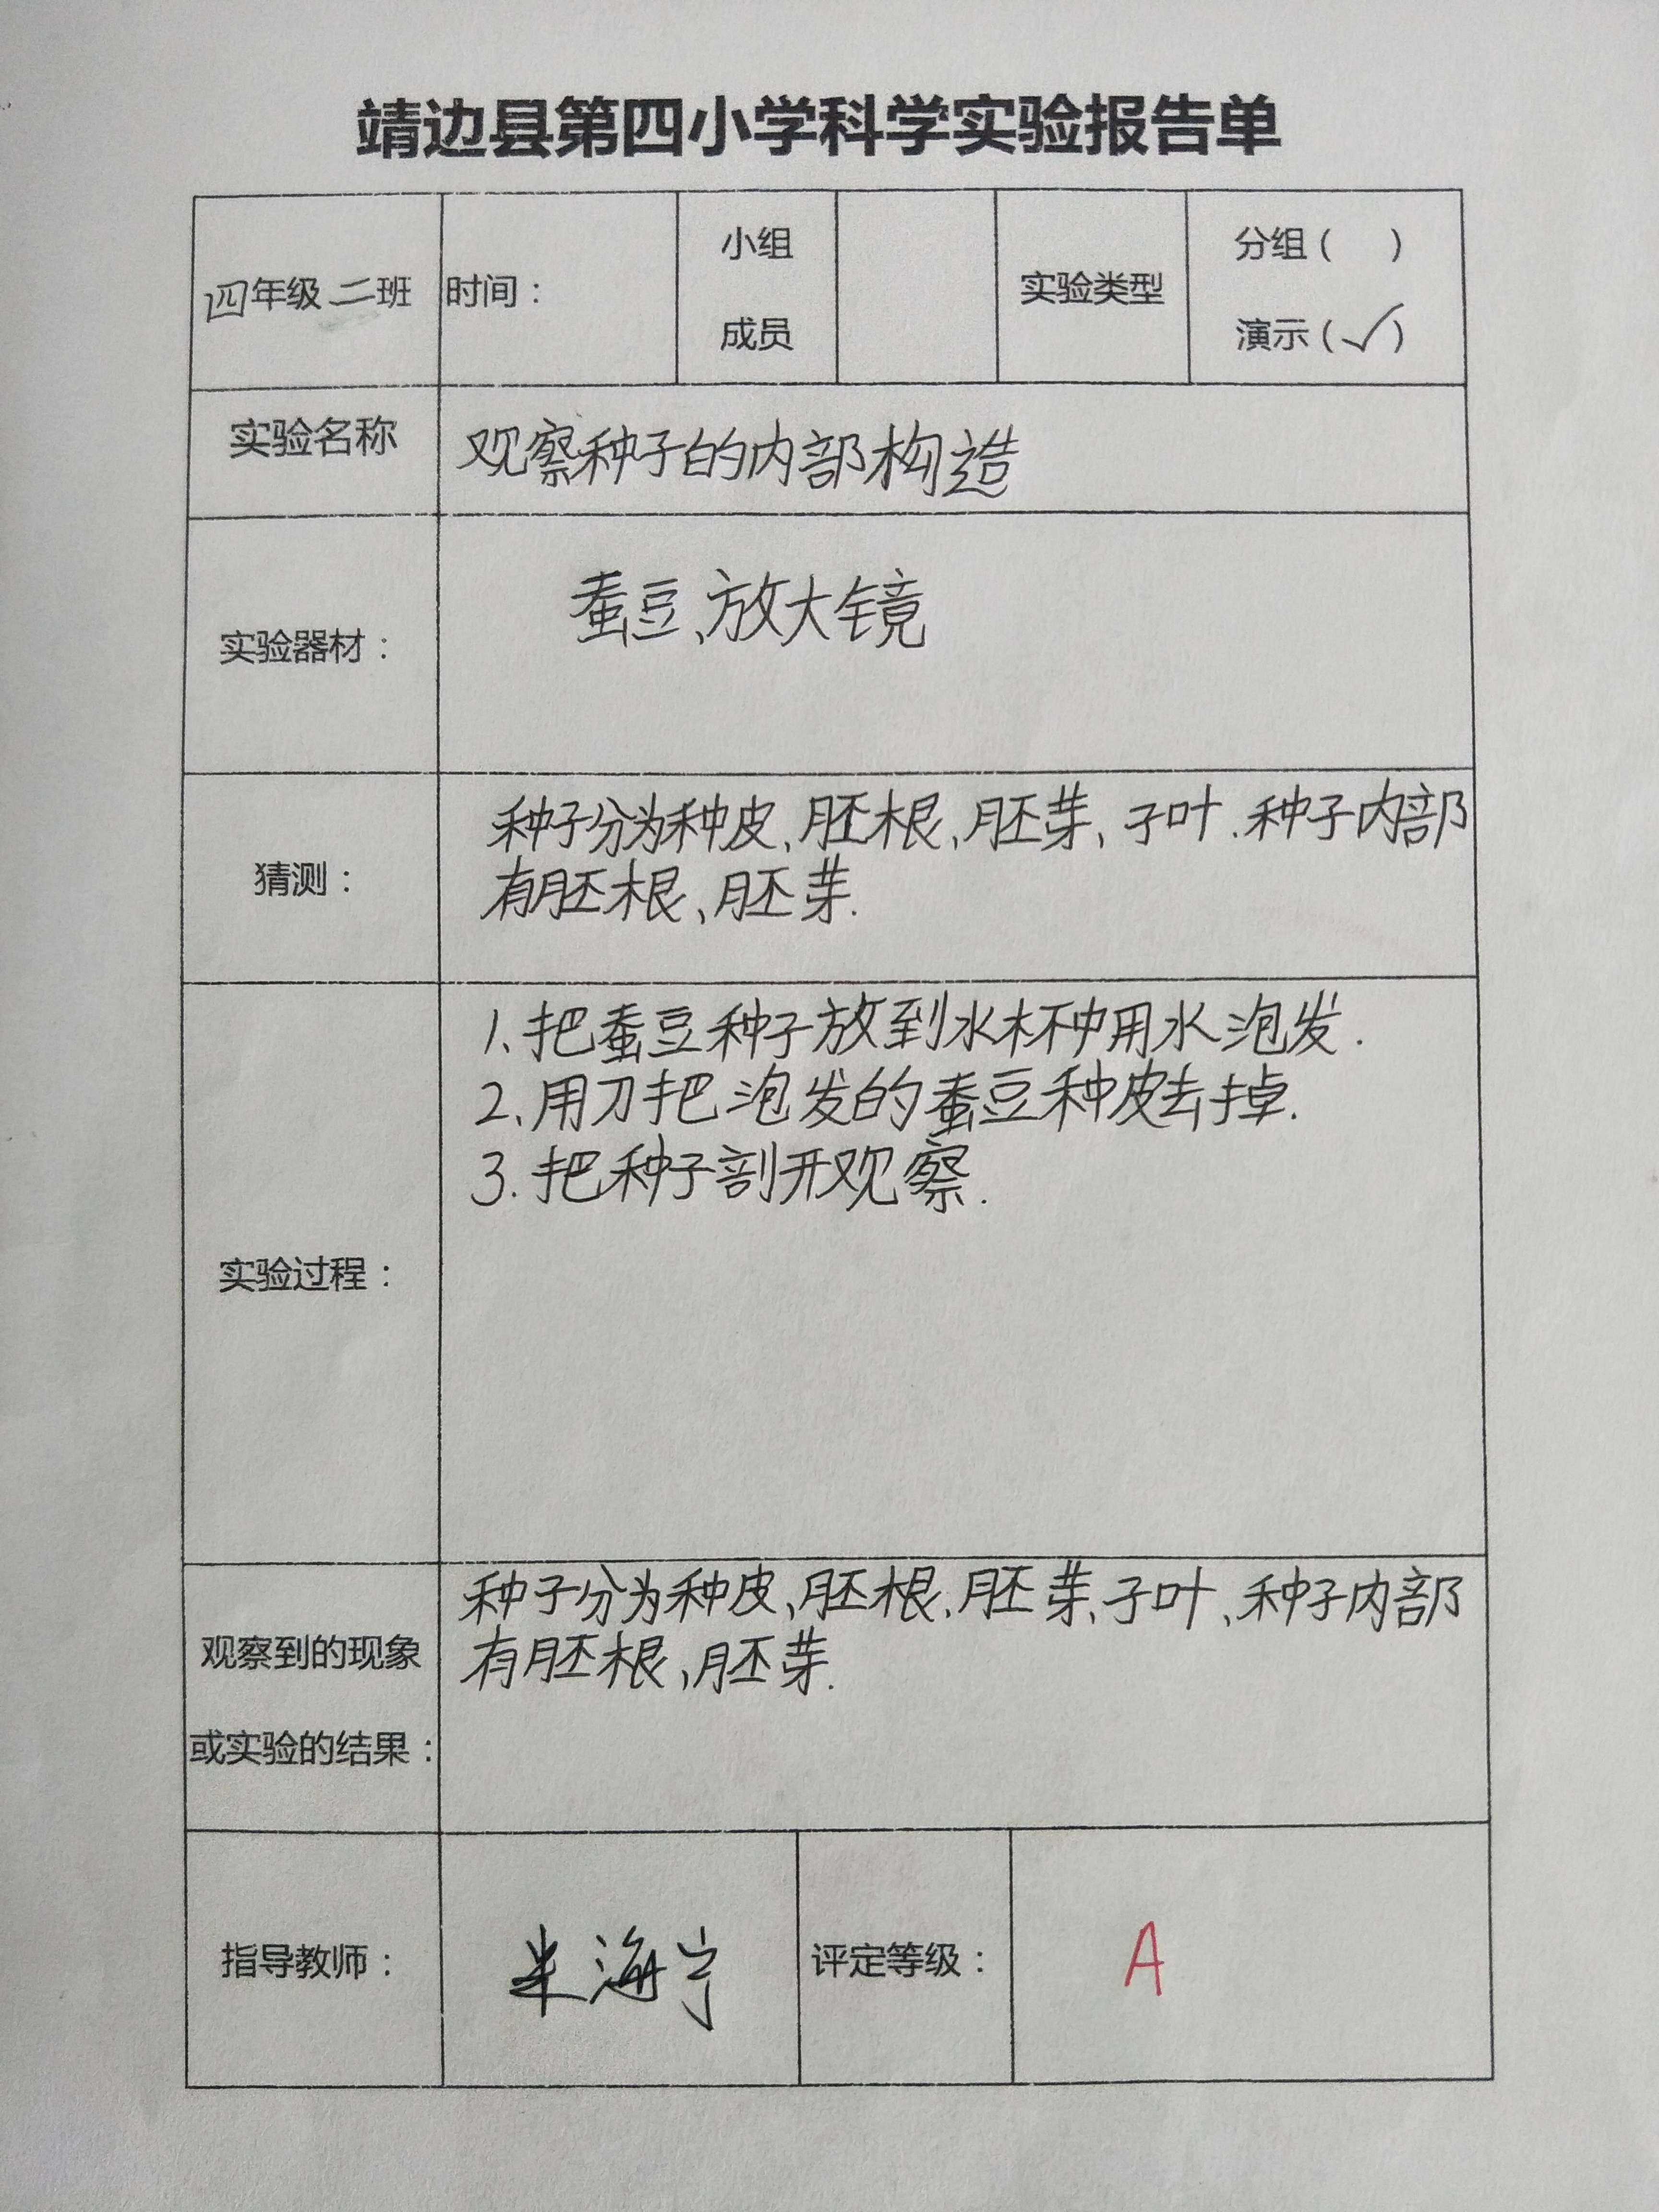 靖边县第四小学科学实验报告单
四年级二班
时间：
小组
成员
实验类型
分组（ ）
演示（✓）
实验名称
观察种子的内部构造
实验器材：
蚕豆、放大镜
猜测：
种子分为种皮、胚根、胚芽、子叶.种子内部
有胚根、胚芽.
实验过程：
1、把蚕豆种子放到水杯中用水泡发.
2、用刀把泡发的蚕豆种皮去掉.
3.把种子剖开观察.
观察到的现象
或实验的结果：
种子分为种皮、胚根、胚芽、子叶、种子内部
有胚根、胚芽.
指导教师：
米海宁
评定等级：
A